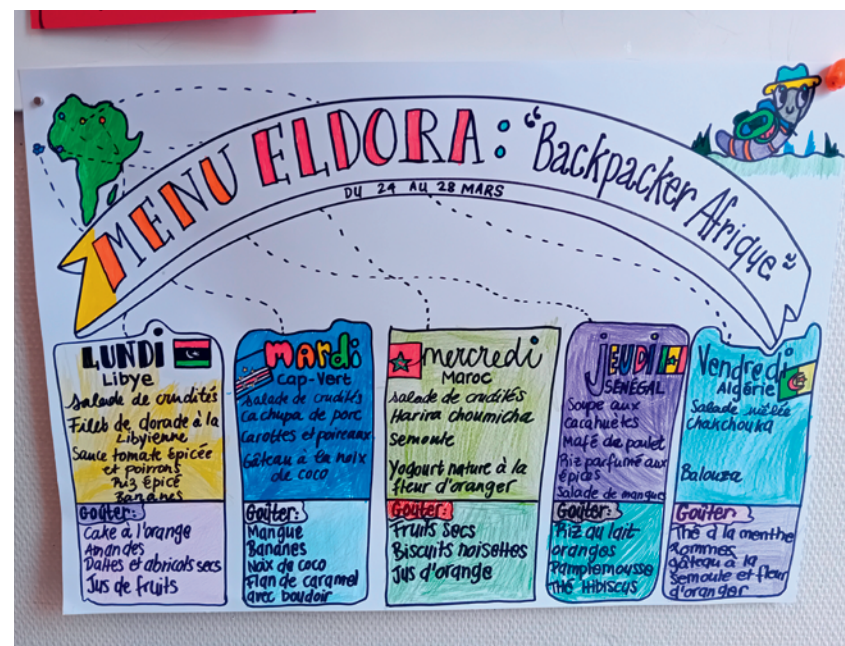 MENU ELDORA: "Backpacker Afrique"
DU 24 AU 28 MARS
LUNDI
Libye
Salade de crudités
Filets de dorade à la
Libyienne
Sauce tomate épicée
et poivrons
Riz épicé
Bananes
Goûter:
Cake à l'orange
Amandes
Dattes et abricots secs
Jus de fruits
Mardi
Cap-Vert
Salade de crudités
Cachupa de porc
Carottes et poireaux
Gâteau à la noix
de coco
Goûter:
Mangue
Bananes
Noix de coco
Flan de caramel
avec boudoir
mercredi
Maroc
Salade de crudités
Harira choumicha
Semoule
Yogourt nature à la
fleur d'oranger
Goûter:
Fruits secs
Biscuits noisettes
Jus d'orange
JEUDI
SÉNÉGAL
Soupe aux
cacahuètes
Mafé de poulet
Riz parfumé aux
épices
Salade de mangue
Goûter:
Riz au lait
oranges
Pamplemousse
Thé Hibiscus
Vendredi
Algérie
Salade mêlée
chakchouka
Balouza
Goûter
Thé à la menthe
Pommes
gâteau à la
Semoule et fleur
d'oranger